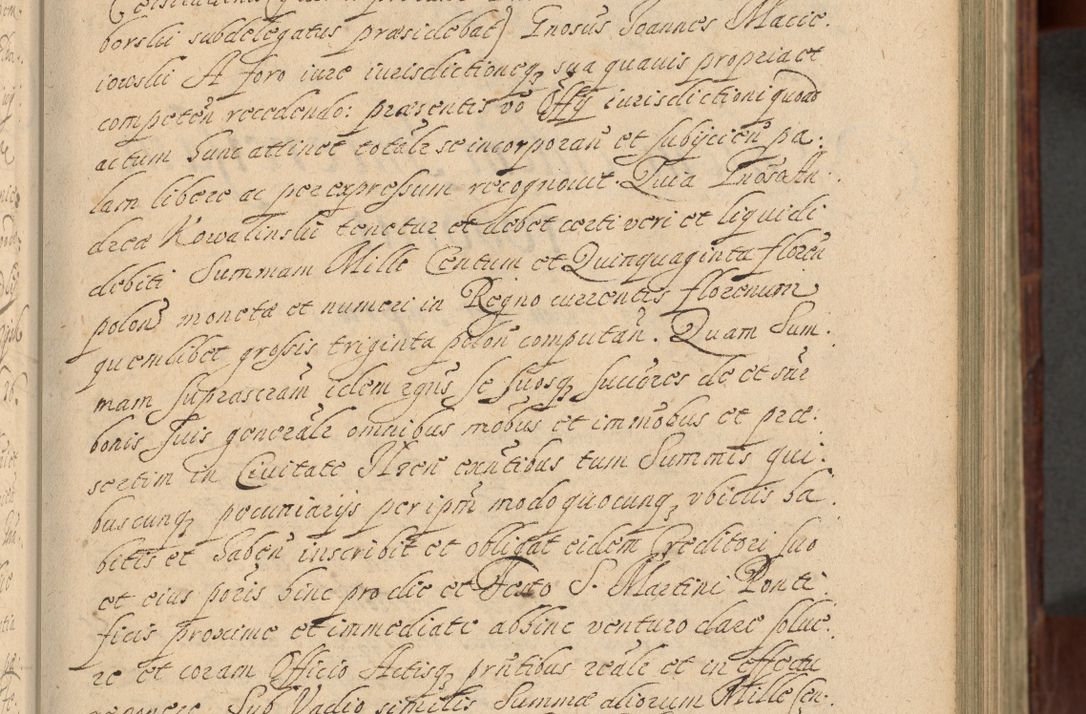 borslii subdelegatus præsidebat) Gnosus Joannes Macie:
iowslii A foro iure iurisdictioneq, sua quauis propria et
competen̄ recedendo: præsentis vō Offy iurisdictioni quoad
actum hunc attinet totalr se incorporan̄ et subijcien̄ pa:
lam libere ac per expressum recognouit Quia Gnosa An:
drea Kowalinslii tenetur et debet certi veri et liquidi
debiti Summam Mille Centum et Quinquaginta floren̄
polon̄ monetæ et numeri in Regno currentis florenum
quemlibet grossis triginta polon̄ computan̄. Quam Sum:
mam suprascram̄ idem rgn̄s se suosq, succōres de et sūr
bonis suis generālr omnibus mōbus et immōbus et præ:
sertim in Ciuitate Hren̄ exn̄tibus tum Summis qui:
buscunq, pecuniarijs per ipm̄ modo quocunq, vbiuis ha:
bitis et haben̄ inscribit et obligat eidem Creditori suo
et eius pōris hinc pro die et Festo S. Martini Ponti:
ficis proxime et immediate abhinc venturo dare solue:
re et coram Officio Actisq, prn̄tibus reālr et in effectu
Sub Vadio similis Summæ aliorum Mille Cen: